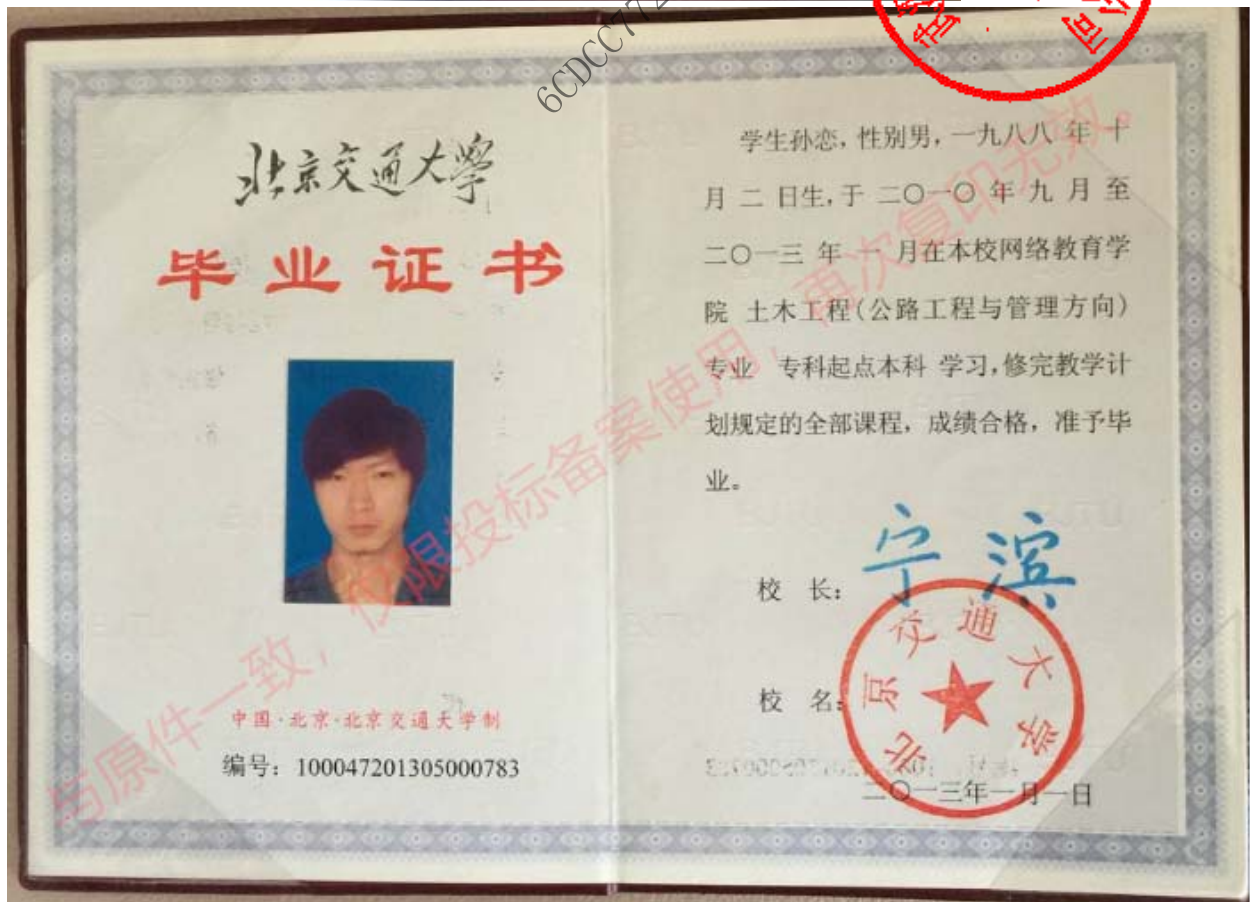 6CDCC772
北京交通大学
毕业证书
中国·北京·北京交通大学制
编号：100047201305000783
学生孙恋，性别男，一九八八 年 十
月 二 日生，于 二〇一〇 年 九 月 至
二〇一三 年 一 月在本校网络教育学
院 土木工程（公路工程与管理方向）
专业 专科起点本科 学习，修完教学计
划规定的全部课程，成绩合格，准予毕
业。
校 长：宁滨
校 名：
北京交通大学
二〇一三年一月一日
与原件一致，仅限投标备案使用，再次复印无效。